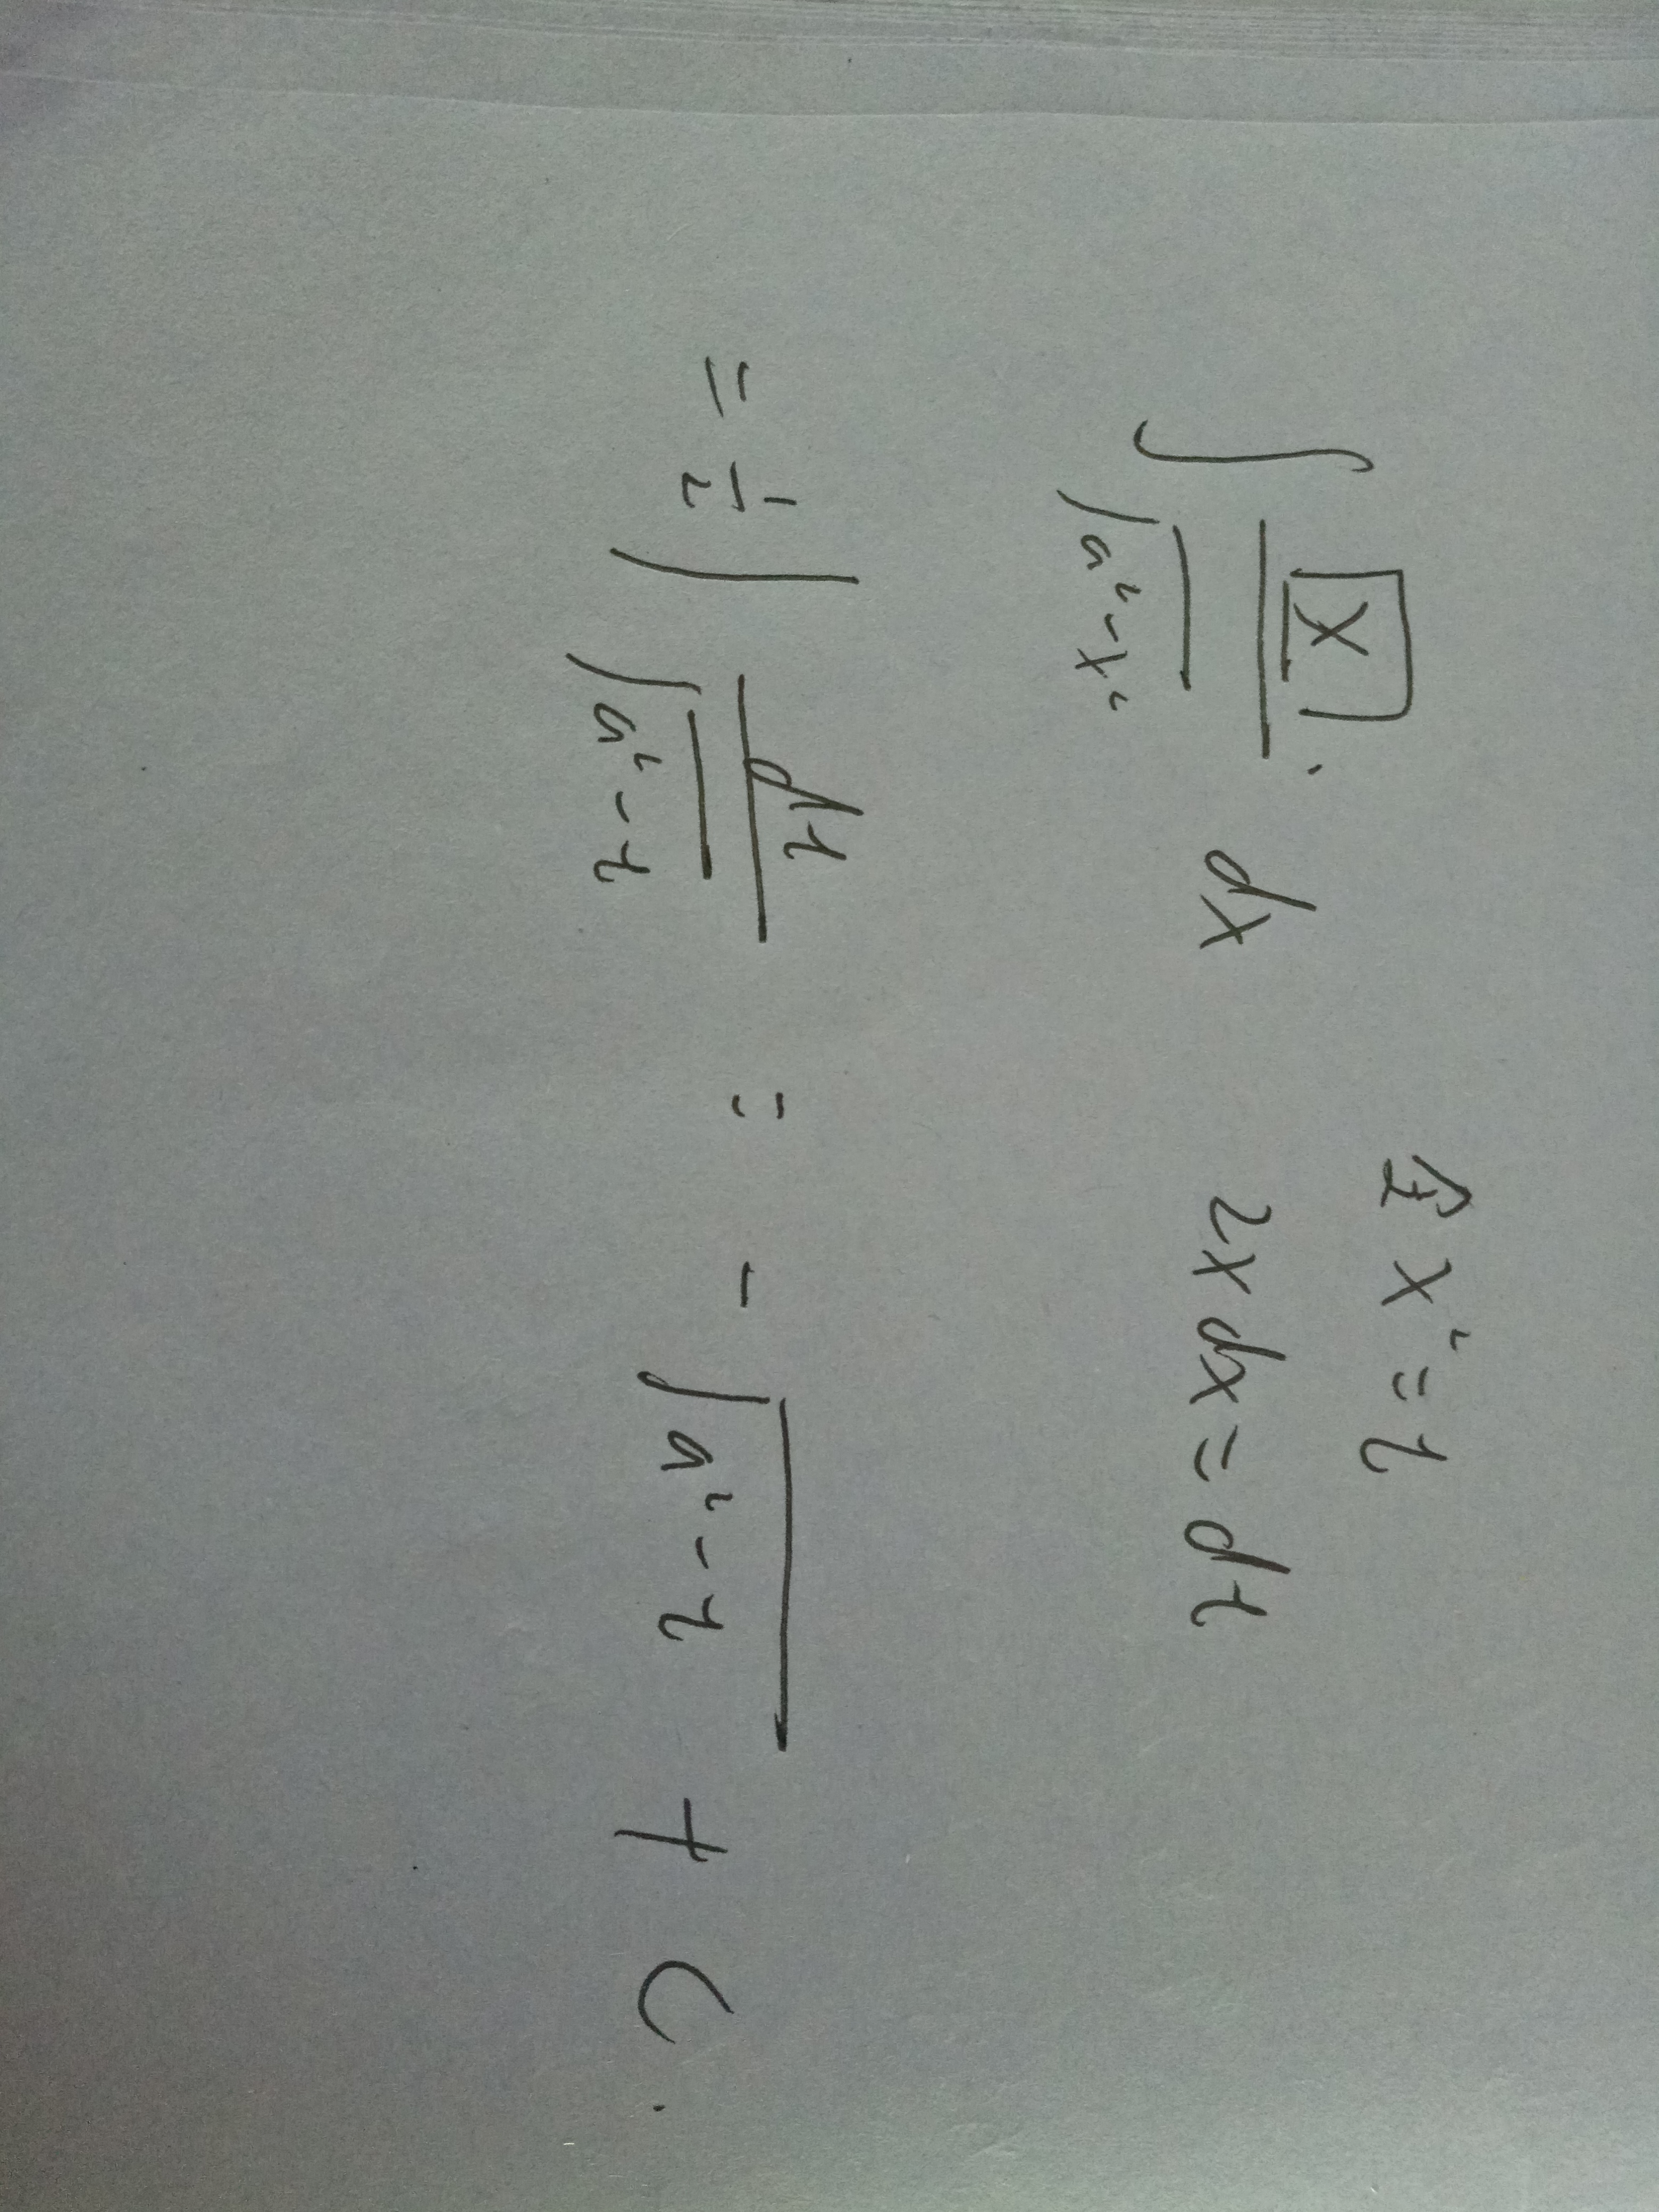 ∫ x/√(a²-x²) dx 令 x²=t
2xdx=dt
= 1/2 ∫ dt/√(a²-t) = - √(a²-t) + C.